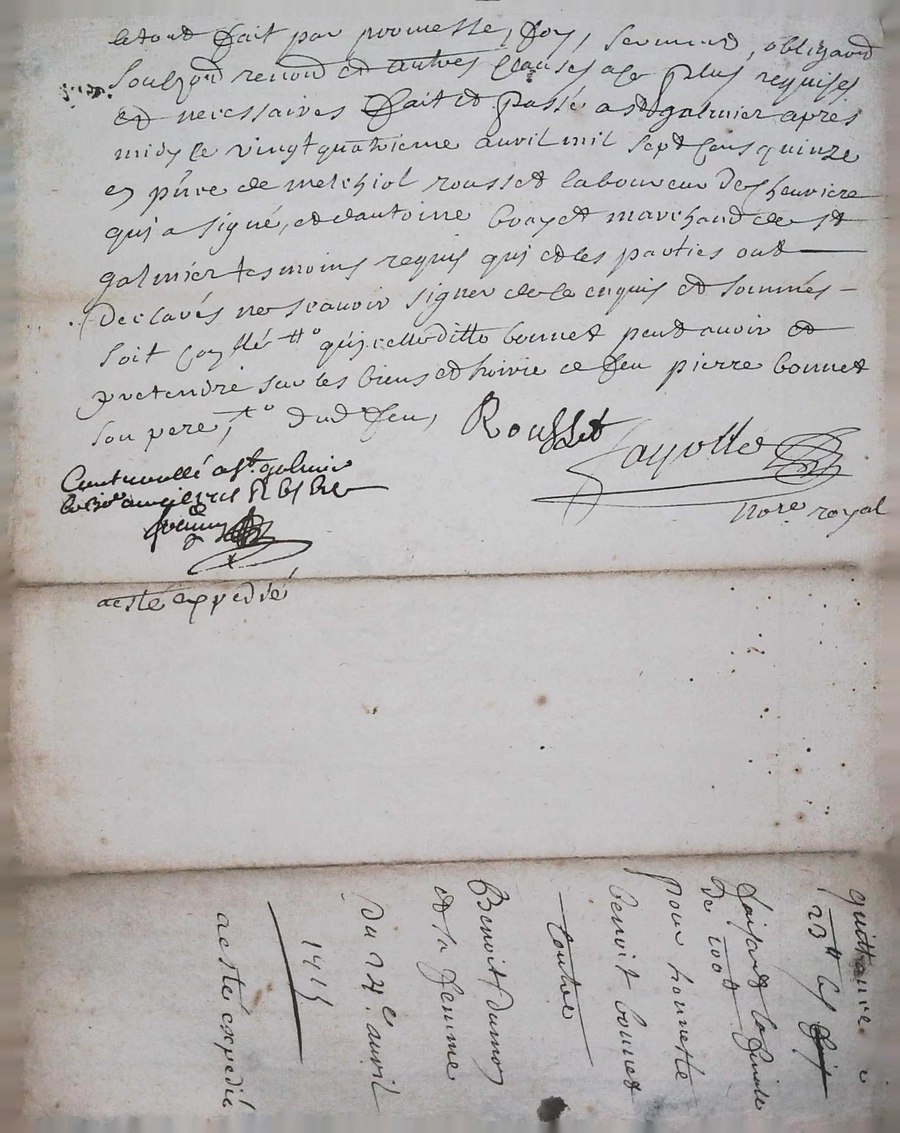 le tout fait par promesse, foy, serment, obligaõn
renond et autres clauses a ce plus requises
et necessaires fait et passé a st galmier apres
midy le vingt quatrieme auril mil sept cens quinze
en pñce de melchiol rousset laboureur de cheuriere
qui a signé, et d'antoine boyet marchand de st
galmier tesmoins requis qui et les parties ont
declarés ne scauoir signer de ce enquis et sommés
soit qui celle ditte bonnet peut auoir et
pretendre sur les biens et hoirie de feu pierre bonnet
son pere, dud feu,
Rousset
fayolle
nore royal
Controullé a st. galmier
le
a esté expedié
quittance
23 tt
faisant la finale
De 100 tt
pour honnette
benoit bonnet
contre
Benoit dumon
et sa femme
Du 24e auril
1715
a esté expedié